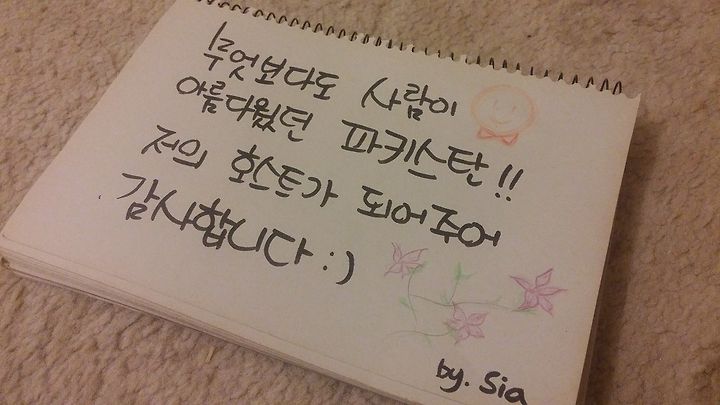 무엇보다도 사람이
아름다웠던 파키스탄!!
저의 호스트가 되어주어
감사합니다 :)
by. Sia